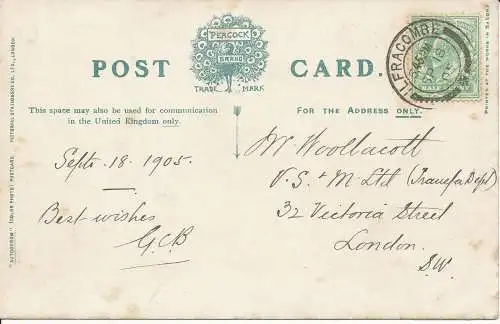 PEACOCK
BRAND
TRADE MARK
POST CARD.
This space may also be used for communication
in the United Kingdom only.
FOR THE ADDRESS ONLY.
Septr. 18. 1905.
Best wishes
G.C.B
Mr Woollacott
V. S. & M Ltd (Transfer Dept)
32 Victoria Street
London.
S.W.
ILFRACOMBE
HALF
"AUTOCHROM" (COLOUR PHOTO) POSTCARD. PICTORIAL STATIONERY CO., LTD., LONDON.
PRINTED AT THE WORKS IN SAXONY